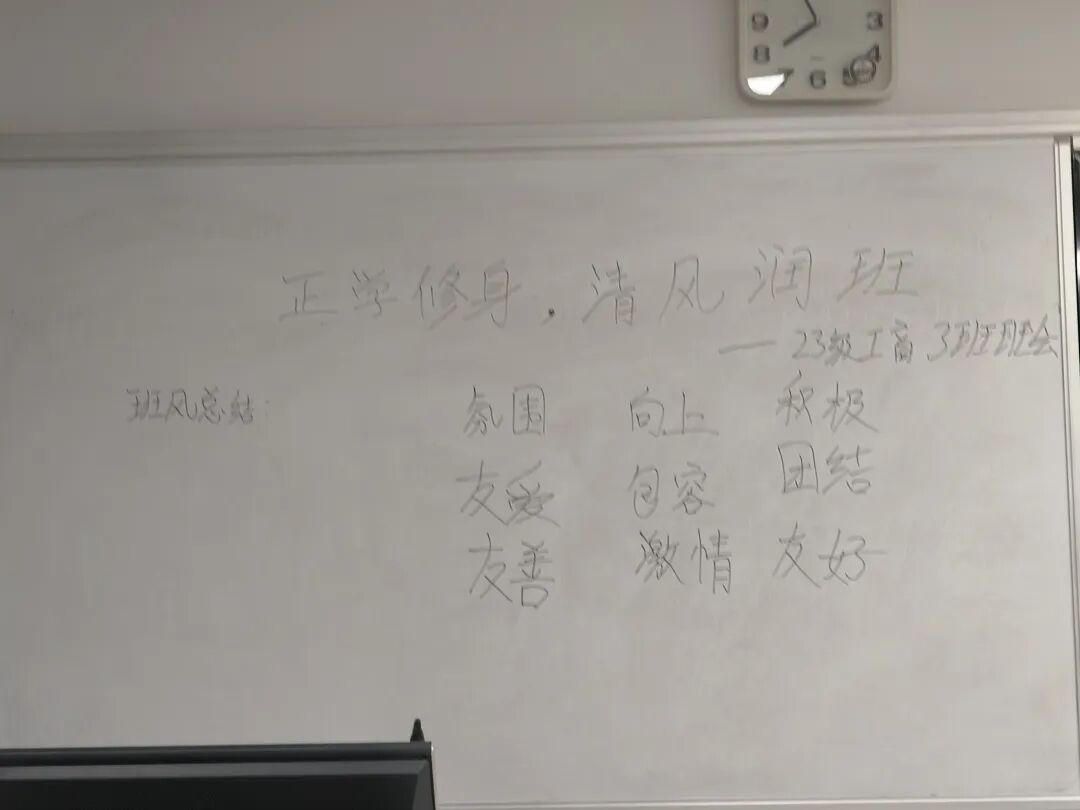 9 3
8 4
7 6 5
正学修身,清风润班
— 23级工商3班班会
班风总结:
氛围 向上 积极
友爱 包容 团结
友善 激情 友好